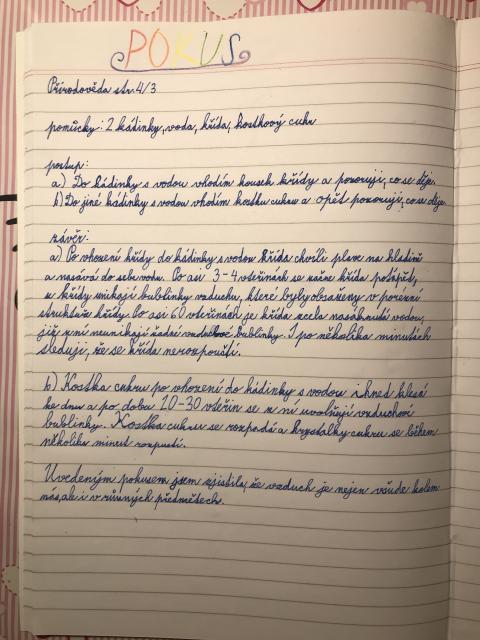 POKUS
Přírodověda str. 4/3
pomůcky: 2 kádinky, voda, křída, kostkový cukr
postup:
a) Do kádinky s vodou vhodím kousek křídy a pozoruji, co se děje.
b) Do jiné kádinky s vodou vhodím kostku cukru a opět pozoruji, co se děje.
závěr:
a) Po vhození křídy do kádinky s vodou křída chvíli plave na hladině
a nasává do sebe vodu. Po asi 3-4 vteřinách se začne křída potápět,
z křídy unikají bublinky vzduchu, které byly obsaženy v porézní
struktuře křídy. Po asi 60 vteřinách je křída zcela nasáknutá vodou,
již z ní neunikají žádné vzduchové bublinky. I po několika minutách
sleduji, že se křída nerozpouští.
b) Kostka cukru po vhození do kádinky s vodou ihned klesá
ke dnu a po dobu 20-30 vteřin se z ní uvolňují vzduchové
bublinky. Kostka cukru se rozpadá a krystalky cukru se během
několika minut rozpustí.
Uvedeným pokusem jsem zjistila, že vzduch je nejen všude kolem
nás, ale i v různých předmětech.